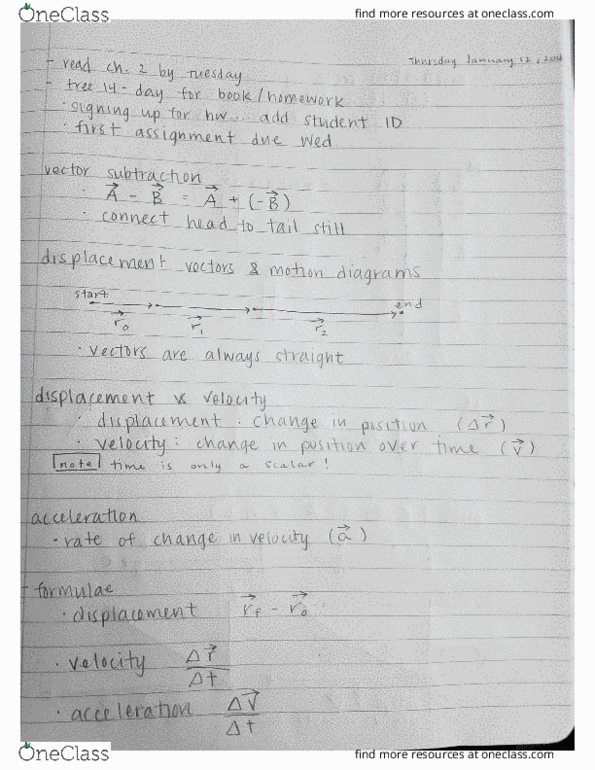 OneClass
find more resources at oneclass.com
Thursday January 12,
- read ch. 2 by Tuesday
- free 14-day for book/homework
· signing up for hw... add student ID
· first assignment due Wed
vector subtraction
· A⃗ - B⃗ = A⃗ + (-B⃗)
· connect head to tail still
displacement vectors & motion diagrams
start end
r⃗₀ r⃗₁ r⃗₂
· vectors are always straight
displacement vs velocity
· displacement : change in position (Δr⃗)
· velocity : change in position over time (v⃗)
note time is only a scalar!
acceleration
· rate of change in velocity (a⃗)
formulae
· displacement r⃗f - r⃗₀
· velocity Δr⃗
Δt
· acceleration Δv⃗
Δt
OneClass
find more resources at oneclass.com